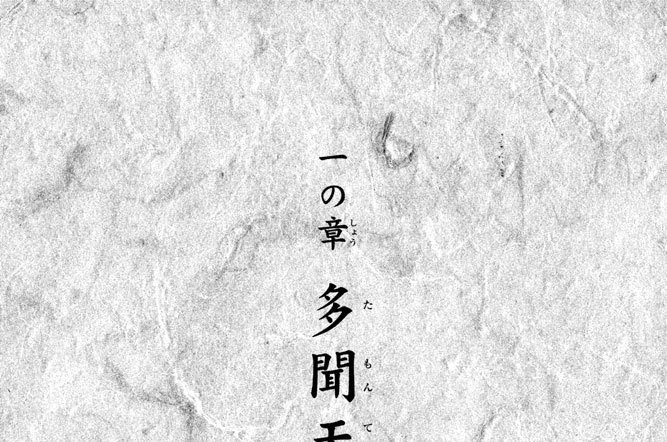 一の章 多聞
しょう
たもんて